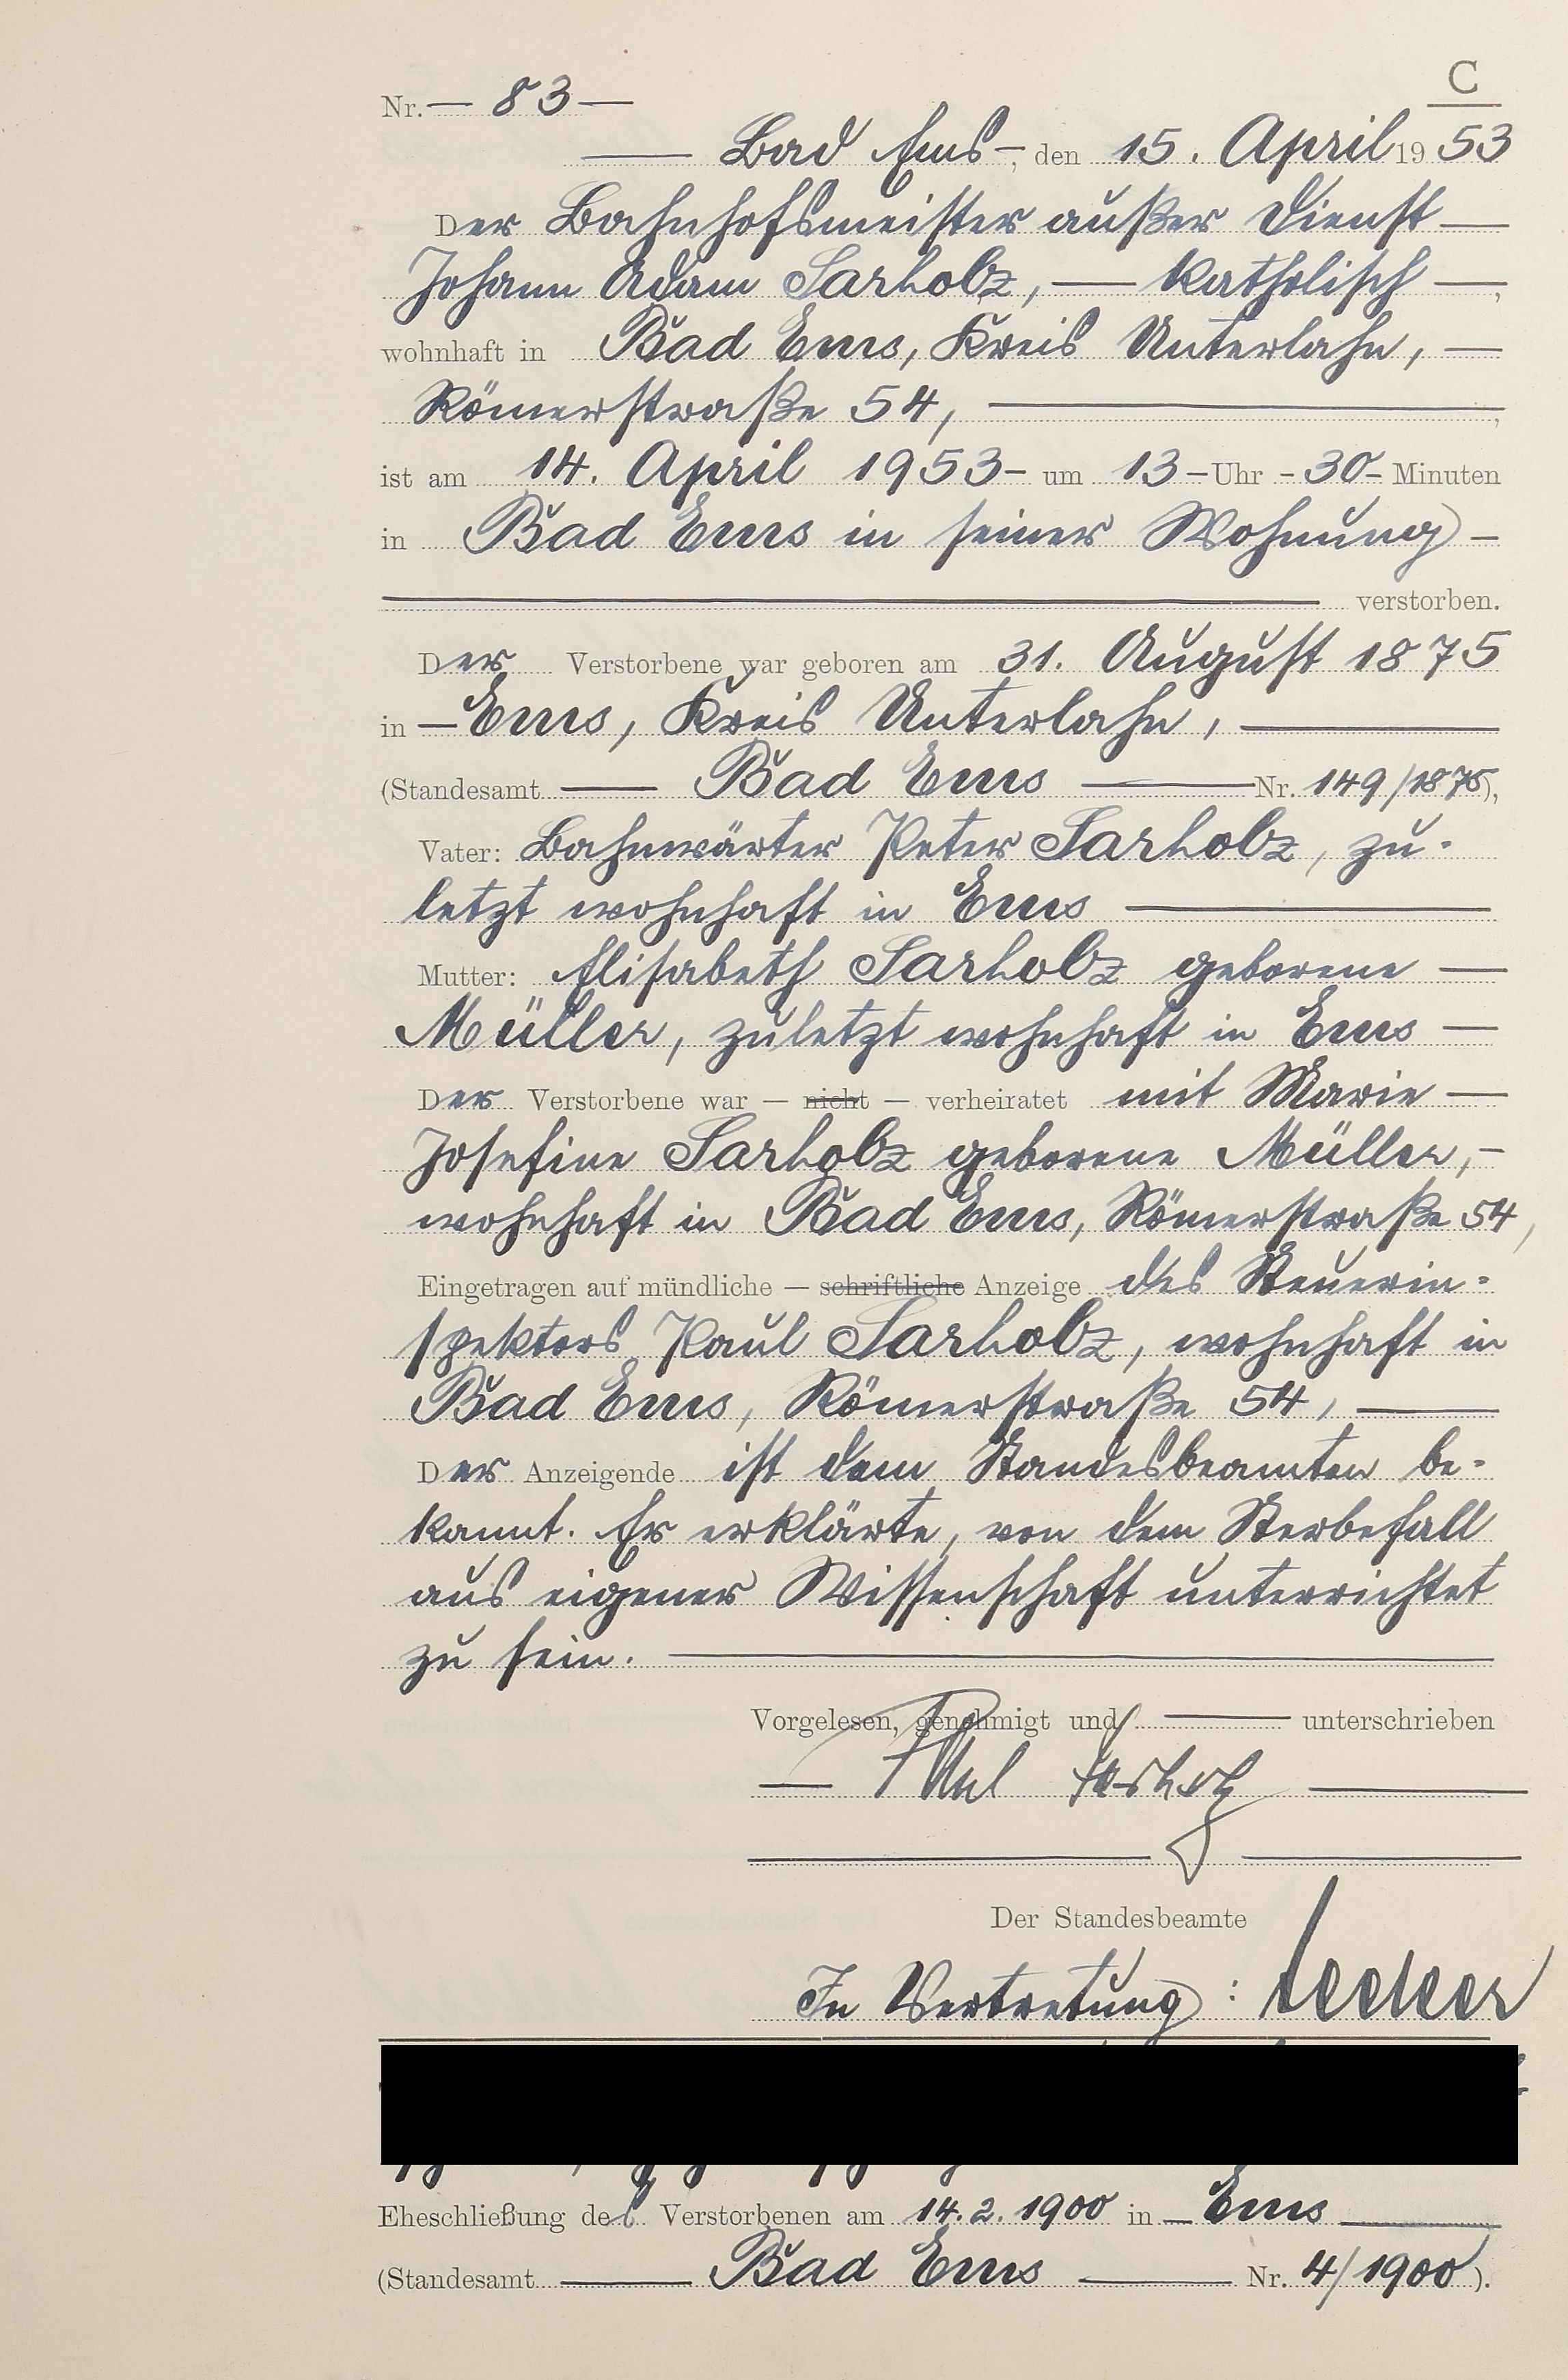 C
Nr. — 83 —
— Bad Ems —, den 15. April 1953
Der Bahnhofsmeister außer Dienst —
Johann Adam Sarholz, — katholisch —,
wohnhaft in Bad Ems, Kreis Unterlahn, —
Römerstraße 54, —,
ist am 14. April 1953 — um 13 — Uhr — 30 — Minuten
in Bad Ems in seiner Wohnung —
— verstorben.
Der Verstorbene war geboren am 31. August 1875
in — Ems, Kreis Unterlahn, —
(Standesamt — Bad Ems — Nr. 149/1875),
Vater: Bahnwärter Peter Sarholz, zu-
letzt wohnhaft in Ems —
Mutter: Elisabeth Sarholz geborene —
Müller, zuletzt wohnhaft in Ems —
Der Verstorbene war — nicht — verheiratet mit Marie —
Josefine Sarholz geborene Müller, —
wohnhaft in Bad Ems, Römerstraße 54,
Eingetragen auf mündliche — schriftliche Anzeige des Steuerin-
spektors Paul Sarholz, wohnhaft in
Bad Ems, Römerstraße 54, —
Der Anzeigende ist dem Standesbeamten be-
kannt. Er erklärte, von dem Sterbefall
aus eigener Wissenschaft unterrichtet
zu sein. —
Vorgelesen, genehmigt und — unterschrieben
— Paul Sarholz —
Der Standesbeamte
In Vertretung:
Eheschließung des Verstorbenen am 14.2.1900 in — Ems —
(Standesamt — Bad Ems — Nr. 4/1900).